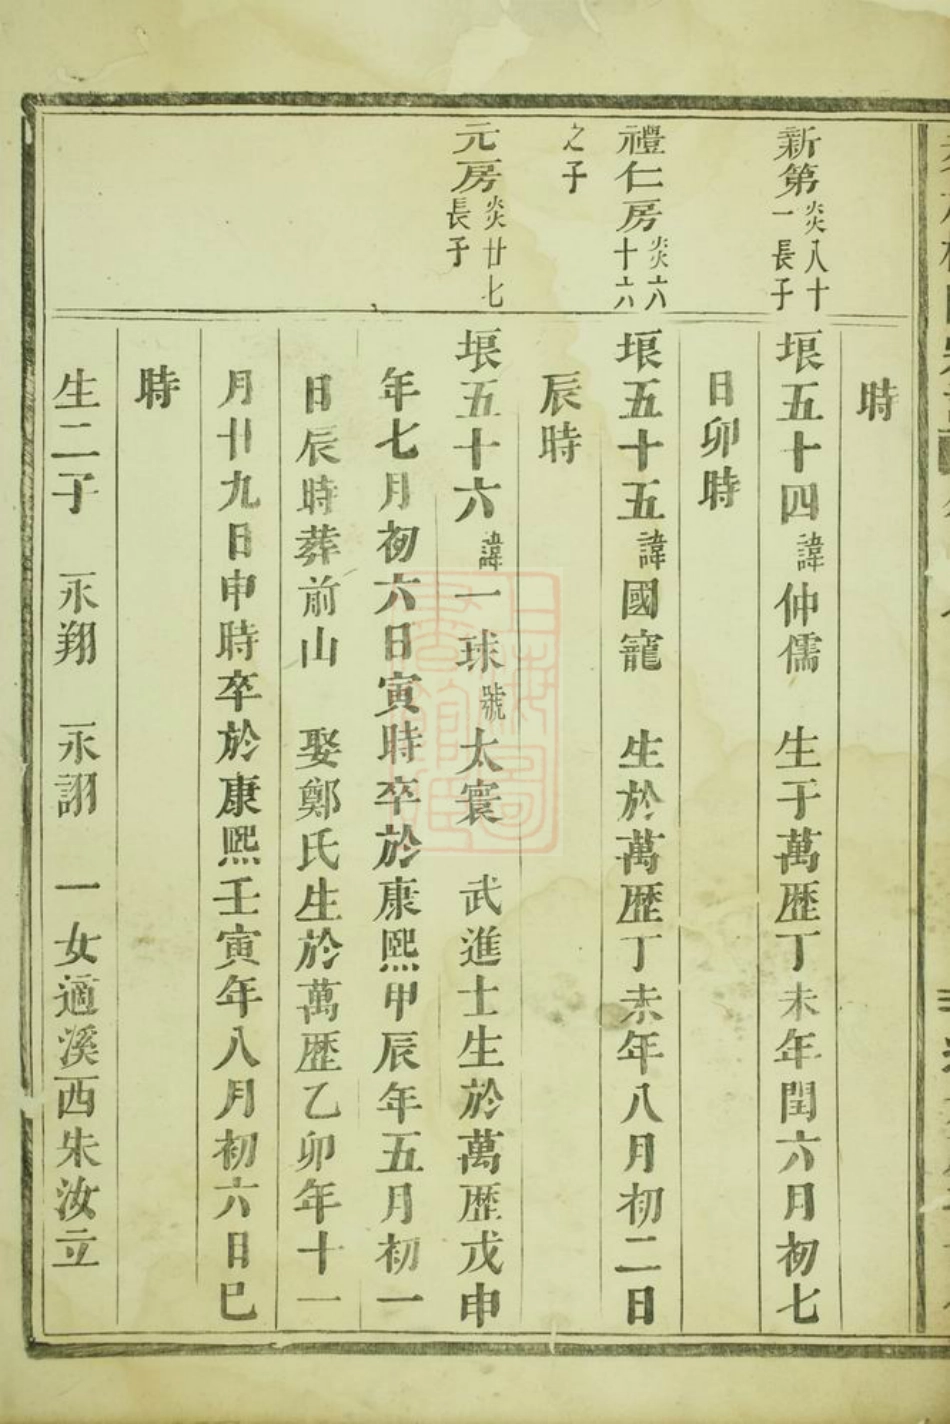 時
新第一炎八十長子
堏五十四諱仲儒　生于萬歷丁未年閏六月初七
日卯時
禮仁房炎六十六
堏五十五諱國寵　生於萬歷丁未年八月初二日
之子
辰時
元房炎廿七長子
堏五十六諱一球號太寰　武進士生於萬歷戊申
年七月初六日寅時卒於康熙甲辰年五月初一
日辰時葬前山　娶鄭氏生於萬歷乙卯年十一
月廿九日申時卒於康熙壬寅年八月初六日巳
時
生二子　永翔　永詡　一女適溪西朱汝立